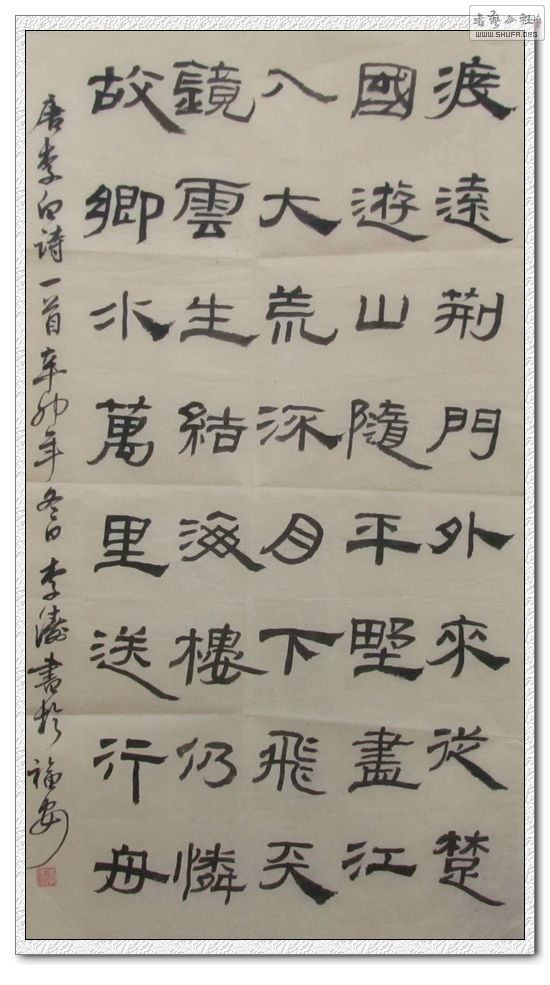 渡遠荊門外來從楚
國遊山隨平野盡江
入大荒深月下飛天
鏡雲生結海樓仍憐
故鄉水萬里送行舟
唐李白诗一首辛卯年冬日李濤書於福安
书艺公社
WWW.SHUFA.ORG